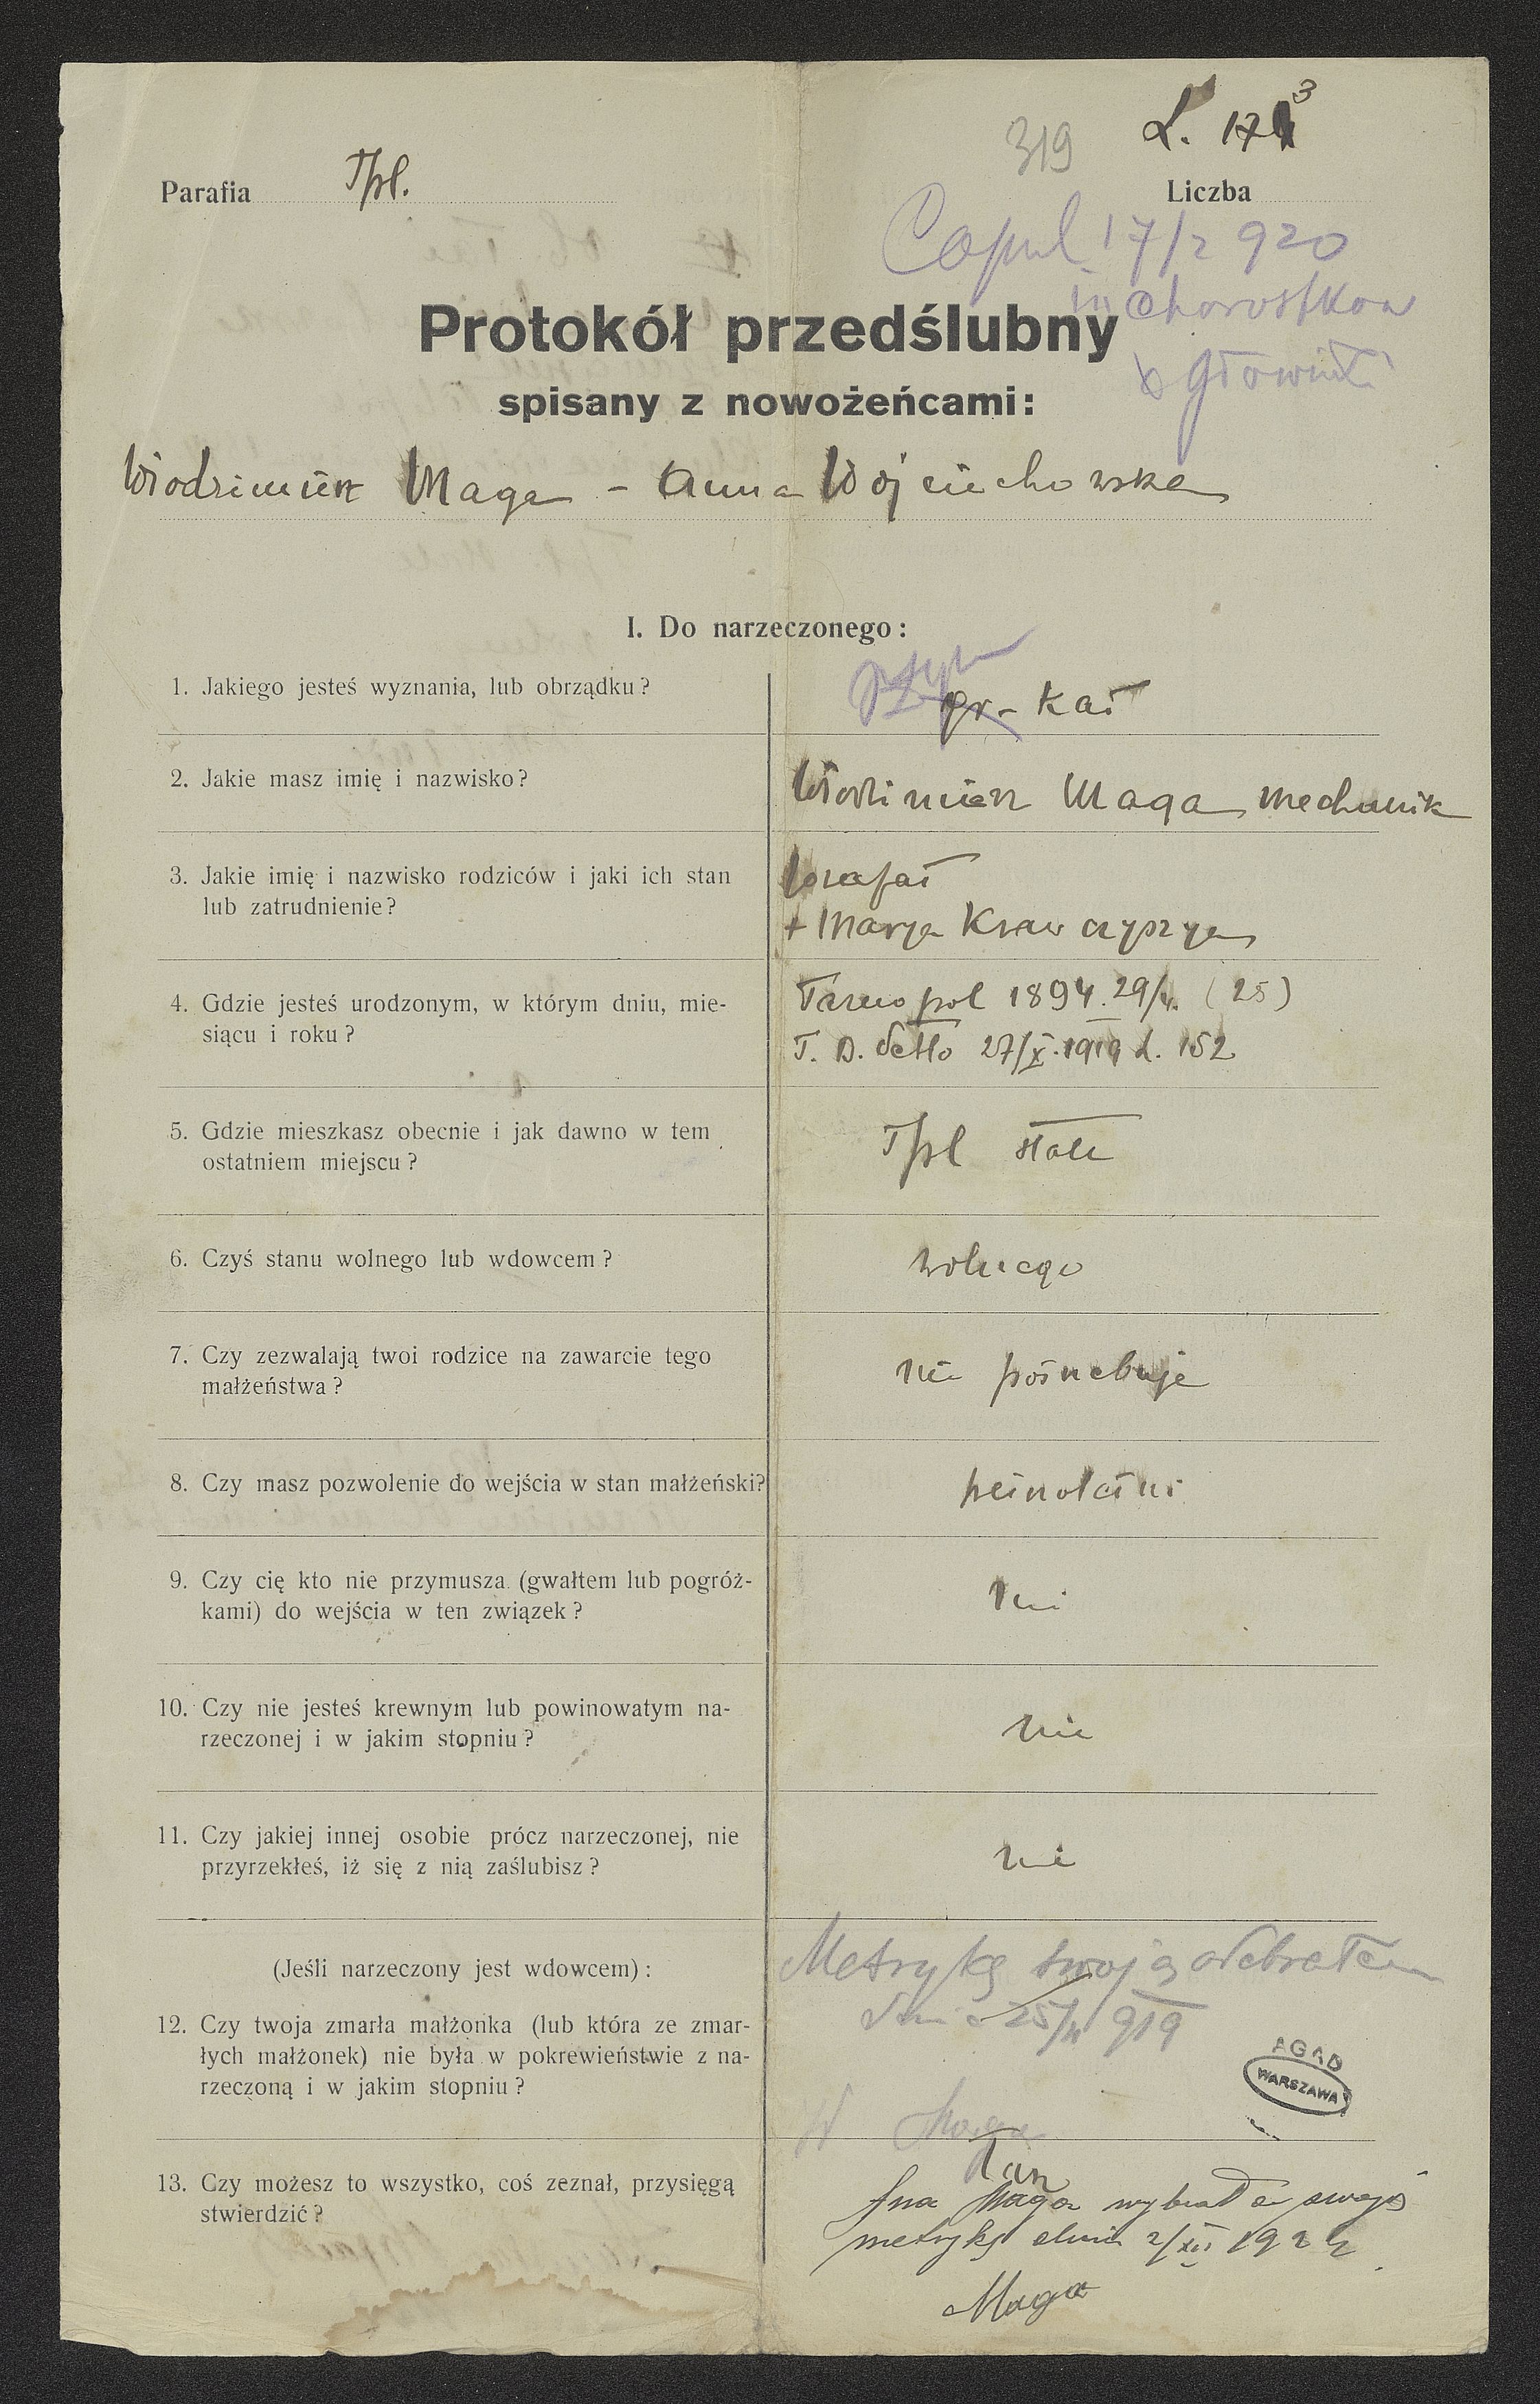 319 L. 173
Parafia Tpl. Liczba
Copul. 17/2 920
in Chorostkow
Protokół przedślubny
spisany z nowożeńcami:
Włodzimierz Maga - Anna Wojciechowska
I. Do narzeczonego:
1. Jakiego jesteś wyznania, lub obrządku? gr-kat
2. Jakie masz imię i nazwisko? Włodzimierz Maga mechanik
3. Jakie imię i nazwisko rodziców i jaki ich stan
lub zatrudnienie?
+ Marya Krawczyszyn
4. Gdzie jesteś urodzonym, w którym dniu, mie- Tarnopol 1894. 29/4. (25)
siącu i roku? T. B. detto 27/X. 1919 L. 152
5. Gdzie mieszkasz obecnie i jak dawno w tem Tpl stale
ostatniem miejscu?
6. Czyś stanu wolnego lub wdowcem? wolnego
7. Czy zezwalają twoi rodzice na zawarcie tego nie potrzebuje
małżeństwa?
8. Czy masz pozwolenie do wejścia w stan małżeński? pełnoletni
9. Czy cię kto nie przymusza (gwałtem lub pogróż- nie
kami) do wejścia w ten związek?
10. Czy nie jesteś krewnym lub powinowatym na- nie
rzeczonej i w jakim stopniu?
11. Czy jakiej innej osobie prócz narzeczonej, nie nie
przyrzekłeś, iż się z nią zaślubisz?
(Jeśli narzeczony jest wdowcem): Metrykę swoją odebrałem
12. Czy twoja zmarła małżonka (lub która ze zmar- dnia 25/11 919
łych małżonek) nie była w pokrewieństwie z na-
rzeczoną i w jakim stopniu?
AGAD
WARSZAWA
W Maga
13. Czy możesz to wszystko, coś zeznał, przysięgą
stwierdzić?
Maga wybrała swoją
metrykę dnia 2/XII 1924
Maga